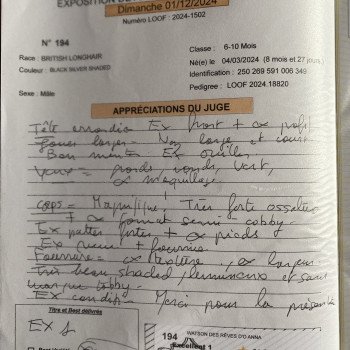 EXPOSITION DE
Dimanche 01/12/2024
Numéro LOOF : 2024-1502
N° 194
Classe : 6-10 Mois
Race : BRITISH LONGHAIR
Né(e) le 04/03/2024 (8 mois et 27 jours)
Couleur : BLACK SILVER SHADED
Identification : 250 269 591 006 349
Pedigree : LOOF 2024.18820
Sexe : Mâle
APPRÉCIATIONS DU JUGE
Tête arrondie Ex front + profil
Joues larges = Nez large et court
Bon menton Ex oreilles
Yeux = grands, ronds, vert,
maquillage
Corps = Magnifique, Très forte ossature
+ format semi-cobby
Ex pattes fortes + pieds
Ex queue + fournie
Fourrure = texture,
Très beau shaded, lumineux et sans
marque tabby.
Ex condition Merci pour la
Titre et Best délivrés
EX 1
194
WATSON DES RÊVES D'O ANNA
Excellent 1